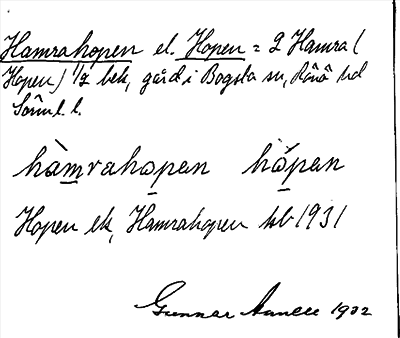 Hamrahopen el. Hopen = 2 Hamra (
Hopen) 1/2 bek, gård i Bogsta sn, Rönö hd
Sörml. l.
hàmrahopan hópan
Hopen ek, Hamrahopen tob 1931
Gunnar 1932